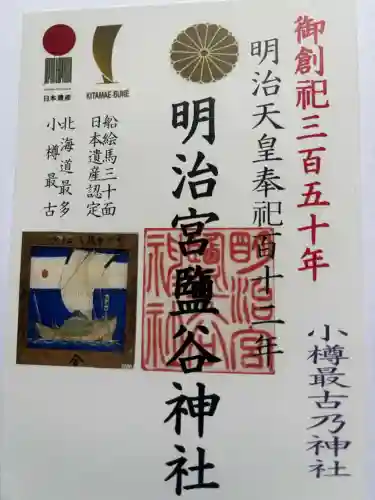 御創祀三百五十年
小樽最古乃神社
明治天皇奉祀百十二年
明治宮鹽谷神社
KITAMAE-BUNE
船絵馬三十面
日本遺産認定
日本遺産
北海道最多
小樽最古
明治宮
鹽谷
神社